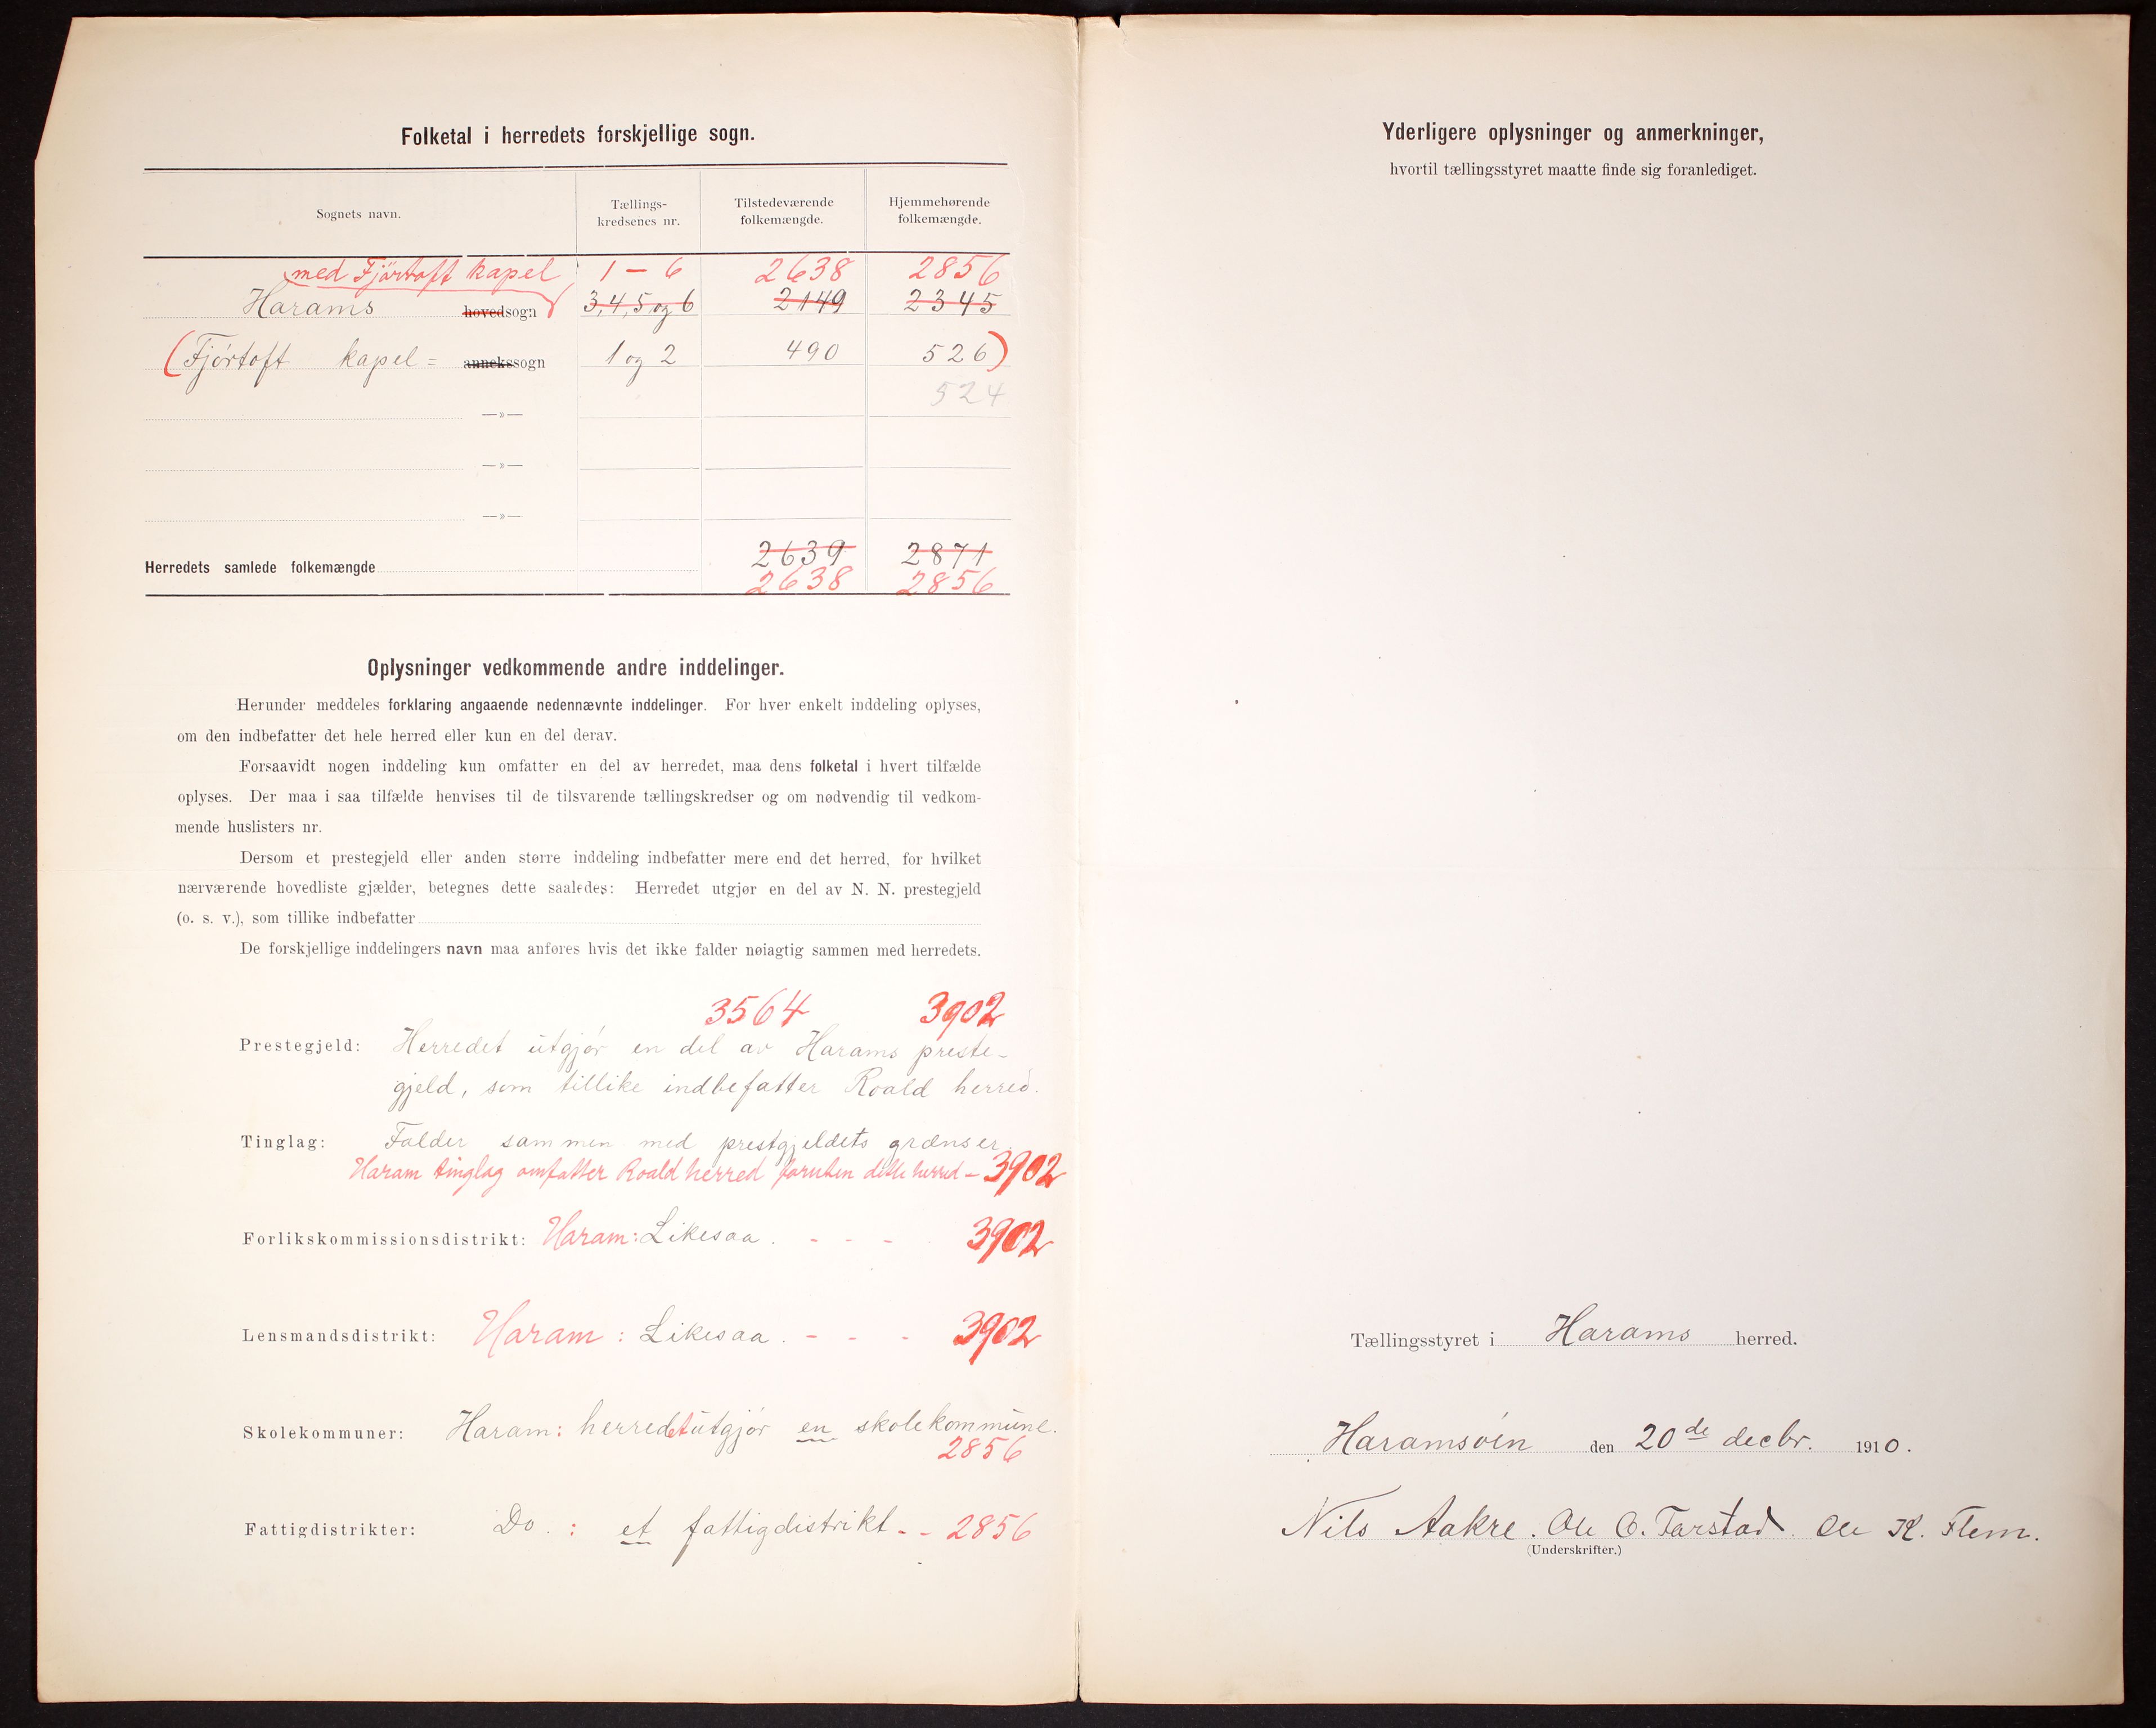 Folketal i herredets forskjellige sogn.
Sognets navn.
Tællings-
kredsenes nr.
Tilstedeværende
folkemængde.
Hjemmehørende
folkemængde.
med Fjørtoft kapel 1 – 6 2638 2856
Harams hovedsogn 3,4,5 og 6 2149 2345
(Fjørtoft kapel = annekssogn 1 og 2 490 526)
524
—»—
—»—
—»—
Herredets samlede folkemængde 2639 2871
2638 2856
Oplysninger vedkommende andre inddelinger.
Herunder meddeles forklaring angaaende nedennævnte inddelinger. For hver enkelt inddeling oplyses,
om den indbefatter det hele herred eller kun en del derav.
Forsaavidt nogen inddeling kun omfatter en del av herredet, maa dens folketal i hvert tilfælde
oplyses. Der maa i saa tilfælde henvises til de tilsvarende tællingskredser og om nødvendig til vedkom-
mende huslisters nr.
Dersom et prestegjeld eller anden større inddeling indbefatter mere end det herred, for hvilket
nærværende hovedliste gjælder, betegnes dette saaledes: Herredet utgjør en del av N. N. prestegjeld
(o. s. v.), som tillike indbefatter
De forskjellige inddelingers navn maa anføres hvis det ikke falder nøiagtig sammen med herredets.
3564 3902
Prestegjeld: Herredet utgjør en del av Harams preste-
gjeld, som tillike indbefatter Roald herred.
Tinglag: Falder sammen med prestgjeldets grænser
Haram tinglag omfatter Roald herred foruten dette herred – 3902
Forlikskommissionsdistrikt: Haram: Likesaa. - - - 3902
Lensmandsdistrikt: Haram: Likesaa. - - - 3902
Skolekommuner: Haram: herredet utgjør en skolekommune.
2856
Fattigdistrikter: Do. : et fattigdistrikt - - 2856
Yderligere oplysninger og anmerkninger,
hvortil tællingsstyret maatte finde sig foranlediget.
Tællingsstyret i Harams herred.
Haramsøen den 20de decbr. 1910.
Nils Aakre. Ole O. Tarstad. Ole K. Flem.
(Underskrifter.)